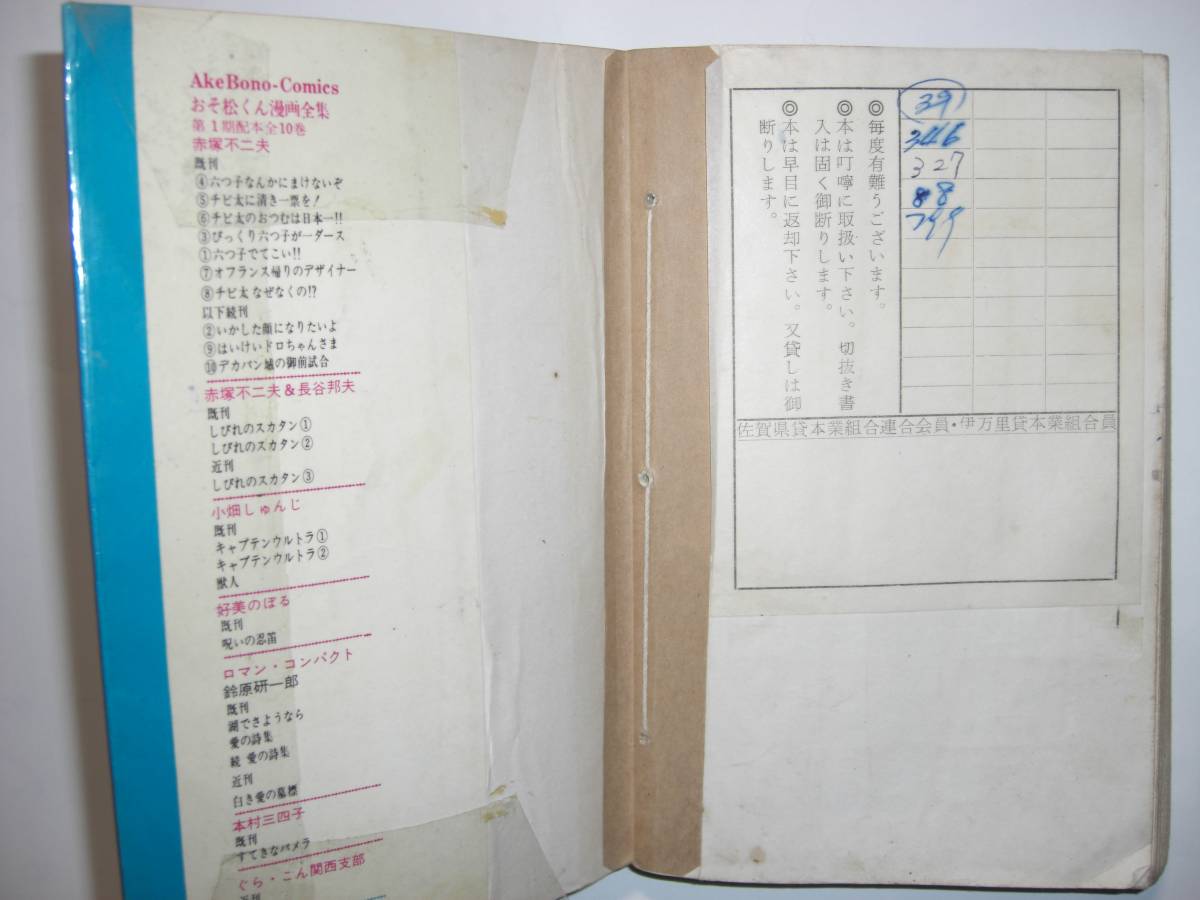 AkeBono-Comics
おそ松くん漫画全集
第1期配本全10巻
赤塚不二夫
既刊
④六つ子なんかにまけないぞ
⑤チビ太に清き一票を!
⑥チビ太のおつむは日本一!!
③びっくり六つ子が一ダース
①六つ子でてこい!!
⑦オフランス帰りのデザイナー
⑧チビ太なぜなくの!?
以下続刊
②いかした顔になりたいよ
⑨はいけいドロちゃんさま
⑩デカパン城の御前試合
赤塚不二夫&長谷邦夫
既刊
しびれのスカタン①
しびれのスカタン②
近刊
しびれのスカタン③
小畑しゅんじ
既刊
キャプテンウルトラ①
キャプテンウルトラ②
獣人
好美のぼる
既刊
呪いの忍笛
ロマン・コンパクト
鈴原研一郎
既刊
湖でさようなら
愛の詩集
続 愛の詩集
近刊
白き愛の墓標
本村三四子
既刊
すてきなパメラ
ぐら・こん関西支部
近刊
39
346
327
88
799
◎毎度有難うございます。
◎本は叮嚀に取扱い下さい。切抜き書
入は固く御断りします。
◎本は早目に返却下さい。又貸しは御
断りします。
佐賀県貸本業組合連合会員・伊万里貸本業組合員